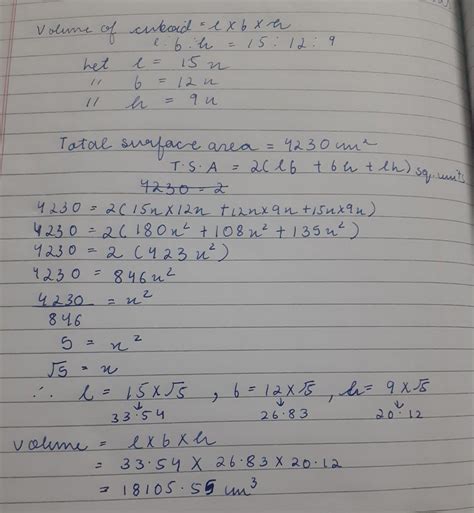 Volume of cuboid = l x b x h
l : b : h = 15 : 12 : 9
Let l = 15x
" b = 12x
" h = 9x
Total surface area = 4230 cm²
T.S.A = 2(lb + bh + lh) sq. units
4230 = 2
4230 = 2(15x x 12x + 12x x 9x + 15x x 9x)
4230 = 2(180x² + 108x² + 135x²)
4230 = 2 (423x²)
4230 = 846x²
4230/846 = x²
5 = x²
√5 = x
∴ l = 15 x √5 , b = 12 x √5 , h = 9 x √5
↓ ↓ ↓
33.54 26.83 20.12
Volume = l x b x h
= 33.54 x 26.83 x 20.12
= 18105.55 cm³